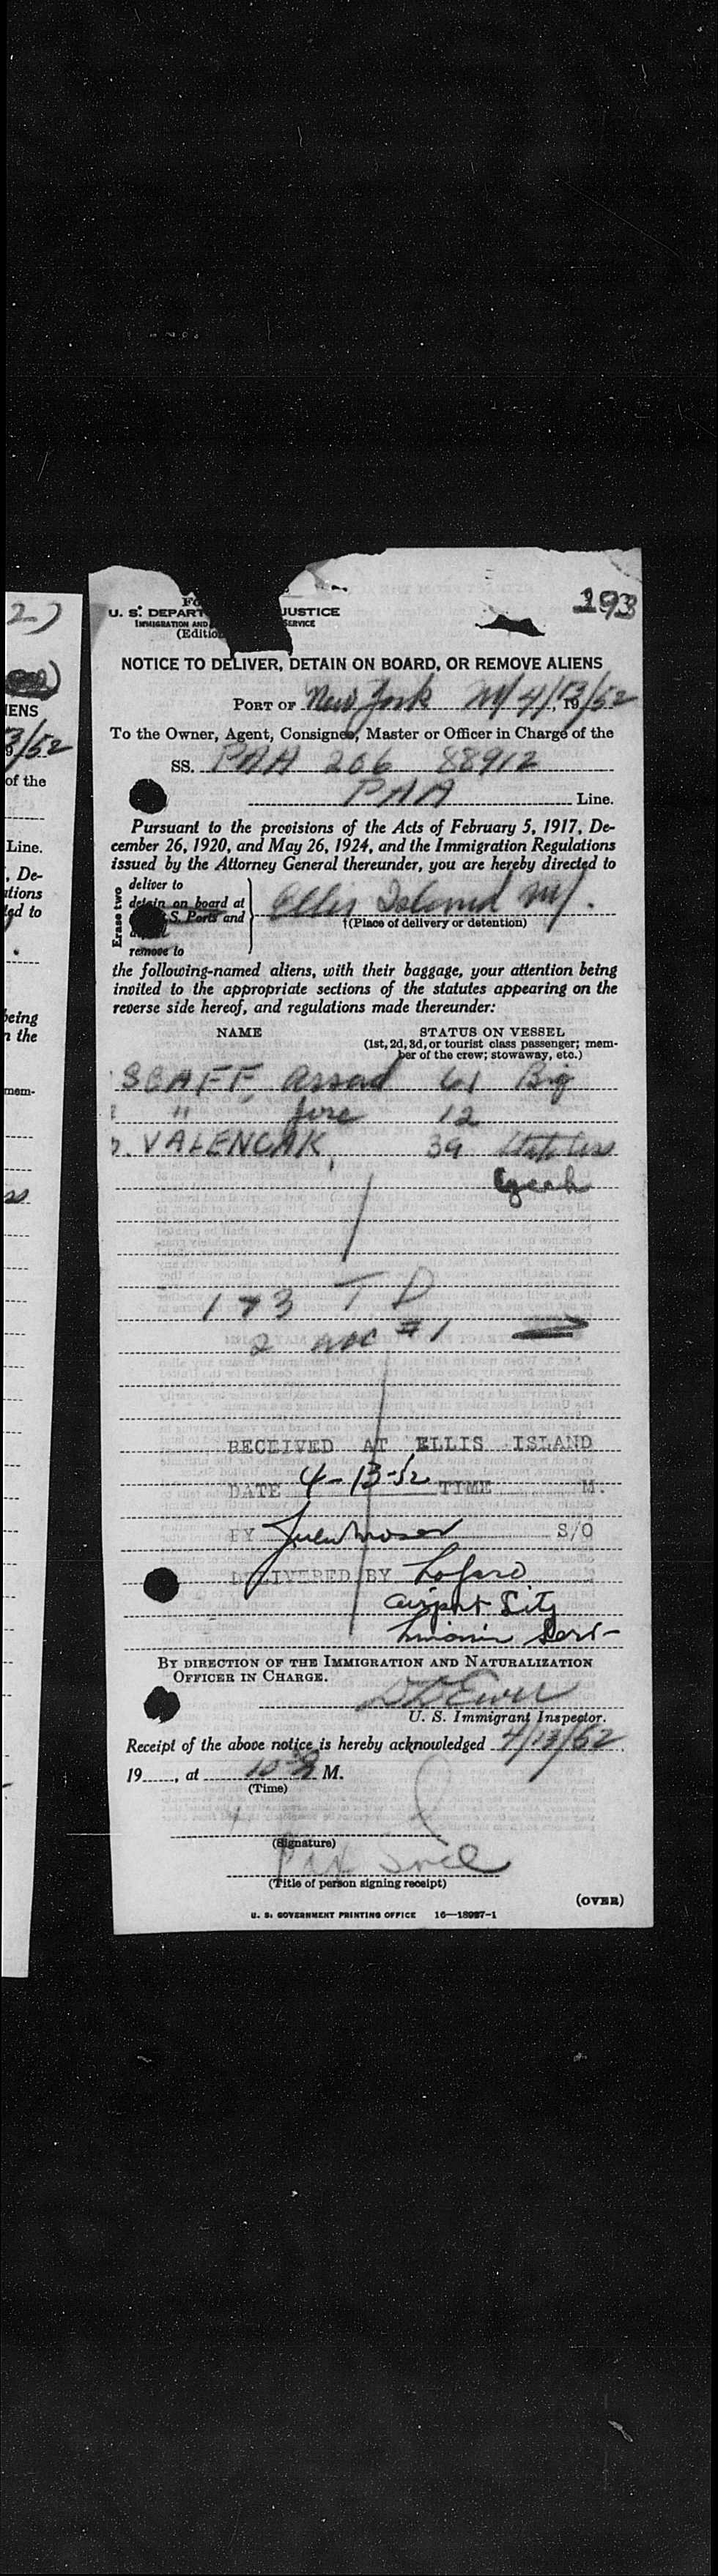 2)
IENS
3/52
of the
Line.
, De-
ations
ted to
being
n the
mem-
193
U. S. DEPART JUSTICE
IMMIGRATION AND SERVICE
(Edition
NOTICE TO DELIVER, DETAIN ON BOARD, OR REMOVE ALIENS
PORT OF New York NY 4/13/52, 19
To the Owner, Agent, Consignee, Master or Officer in Charge of the
SS. PAA 206 88912
PAA Line.
Pursuant to the provisions of the Acts of February 5, 1917, De-
cember 26, 1920, and May 26, 1924, and the Immigration Regulations
issued by the Attorney General thereunder, you are hereby directed to
Erase two
deliver to
detain on board at
S. Ports and
remove to
Ellis Island NY.
†(Place of delivery or detention)
the following-named aliens, with their baggage, your attention being
invited to the appropriate sections of the statutes appearing on the
reverse side hereof, and regulations made thereunder:
NAME STATUS ON VESSEL
(1st, 2d, 3d, or tourist class passenger; mem-
ber of the crew; stowaway, etc.)
SCAFF, Assad 61
" 12
VALENCAK, 39 Stateless
Czech
1 + 3 T D
2 #1
RECEIVED AT ELLIS ISLAND
DATE 4-13-52 TIME M.
BY S/O
DELIVERED BY
Airport City
BY DIRECTION OF THE IMMIGRATION AND NATURALIZATION
OFFICER IN CHARGE.
U. S. Immigrant Inspector.
Receipt of the above notice is hereby acknowledged 4/13/52,
19, at M.
(Time)
(Signature)
(Title of person signing receipt)
(OVER)
U. S. GOVERNMENT PRINTING OFFICE 16—18927-1